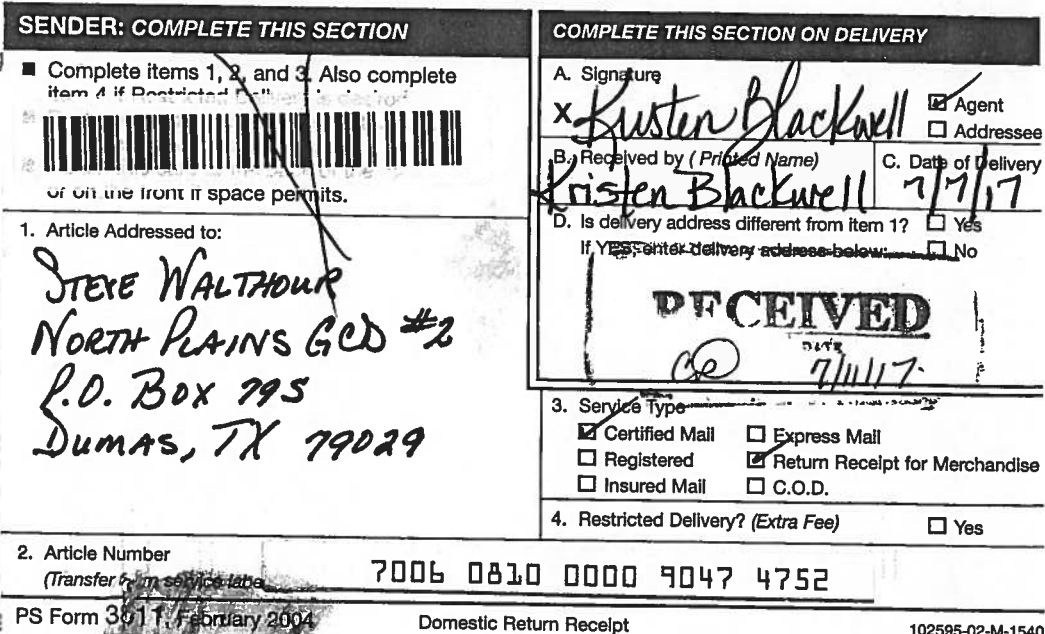 SENDER: COMPLETE THIS SECTION
■ Complete items 1, 2, and 3. Also complete
item 4 if Restricted
or on the front if space permits.
1. Article Addressed to:
STEVE WALTHOUR
NORTH PLAINS GCD #2
P.O. BOX 795
DUMAS, TX 79029
2. Article Number
(Transfer from service label
7006 0810 0000 9047 4752
PS Form 3811, February 2004
Domestic Return Receipt
102595-02-M-1540
COMPLETE THIS SECTION ON DELIVERY
A. Signature
X Kristen Blackwell
☑ Agent
☐ Addressee
B. Received by (Printed Name)
Kristen Blackwell
C. Date of Delivery
7/7/17
D. Is delivery address different from item 1? ☐ Yes
If YES, enter delivery address below: ☐ No
RECEIVED
DATE
7/11/17
3. Service Type
☑ Certified Mail ☐ Express Mail
☐ Registered ☑ Return Receipt for Merchandise
☐ Insured Mail ☐ C.O.D.
4. Restricted Delivery? (Extra Fee) ☐ Yes